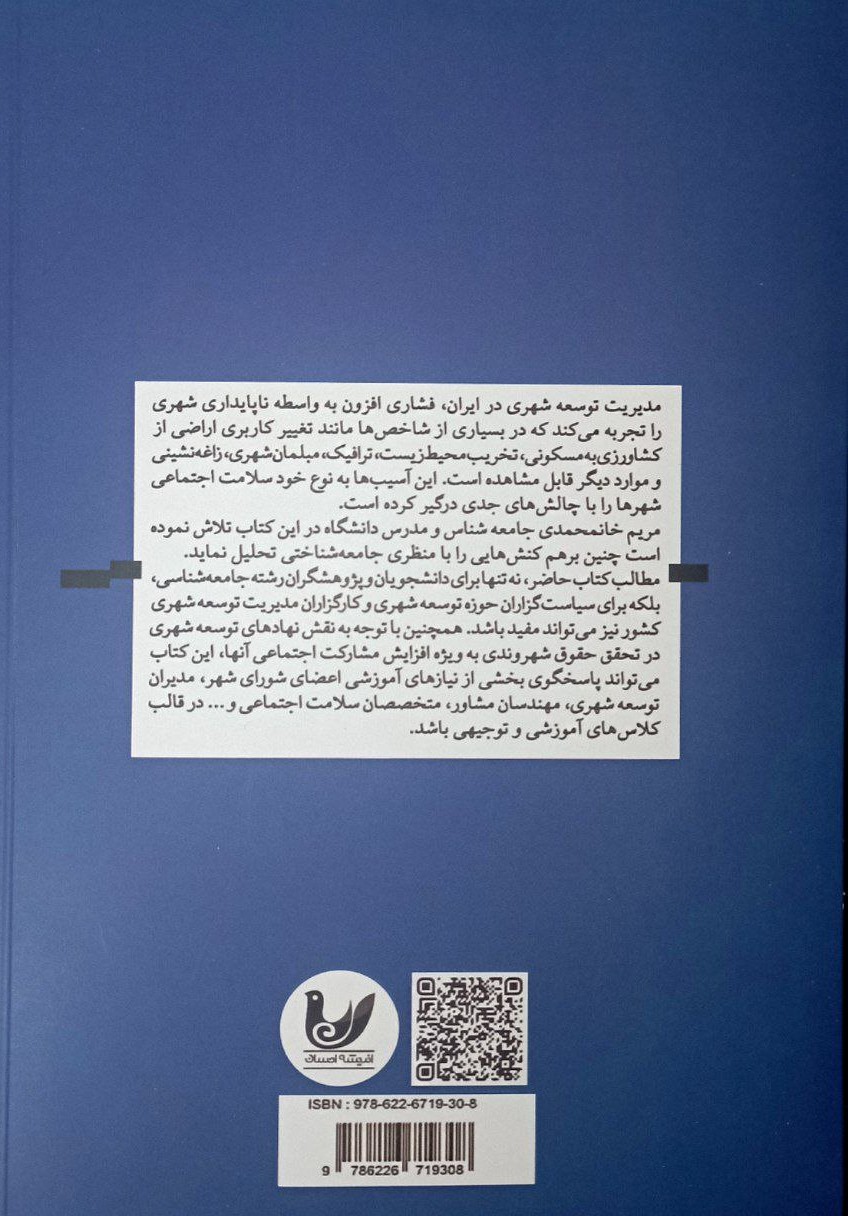 مدیریت توسعه شهری در ایران، فشاری افزون به واسطه ناپایداری شهری
را تجربه می‌کند که در بسیاری از شاخص‌ها مانند تغییر کاربری اراضی از
کشاورزی به مسکونی، تخریب محیط زیست، ترافیک، مبلمان شهری، زاغه‌نشینی
و موارد دیگر قابل مشاهده است. این آسیب‌ها به نوع خود سلامت اجتماعی
شهرها را با چالش‌های جدی درگیر کرده است.
مریم خانمحمدی جامعه شناس و مدرس دانشگاه در این کتاب تلاش نموده
است چنین برهم کنش‌هایی را با منظری جامعه‌شناختی تحلیل نماید.
مطالب کتاب حاضر، نه تنها برای دانشجویان و پژوهشگران رشته جامعه‌شناسی،
بلکه برای سیاست‌گزاران حوزه توسعه شهری و کارگزاران مدیریت توسعه شهری
کشور نیز می‌تواند مفید باشد. همچنین با توجه به نقش نهادهای توسعه شهری
در تحقق حقوق شهروندی به ویژه افزایش مشارکت اجتماعی آنها، این کتاب
می‌تواند پاسخگوی بخشی از نیازهای آموزشی اعضای شورای شهر، مدیران
توسعه شهری، مهندسان مشاور، متخصصان سلامت اجتماعی و... در قالب
کلاس‌های آموزشی و توجیهی باشد.
اندیشه احسان
ISBN : 978-622-6719-30-8
9 786226 719308